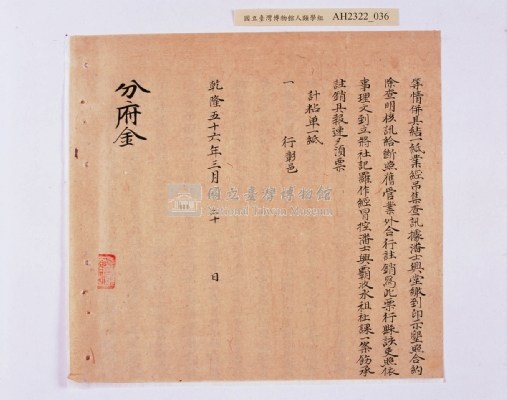 國立臺灣博物館人類學組 AH2322_036
等情併具結一紙業經吊集查訊據潘士興堂繳到印示墾照合約
除查明復訊給斷照舊管業外合行註銷為此票行縣該吏照依
事理文到立將社記羅作經冒控潘士興霸收水租社課一案飭承
註銷具報速速須票
計粘单一紙
一 行彰邑
乾隆五十六年三月 二十 日
分府金
國立臺灣博物館
National Taiwan Museum